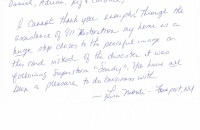 Daniel, Adrian, Kylie & Candice,
I cannot thank you enough! Through the
assistance of 911 Restoration my home is a
huge step closer to the peaceful image on
this card instead of the disaster it was
following Superstorm "Sandy". You have all
been a pleasure to do business with.
— Lisa - Freeport, NY